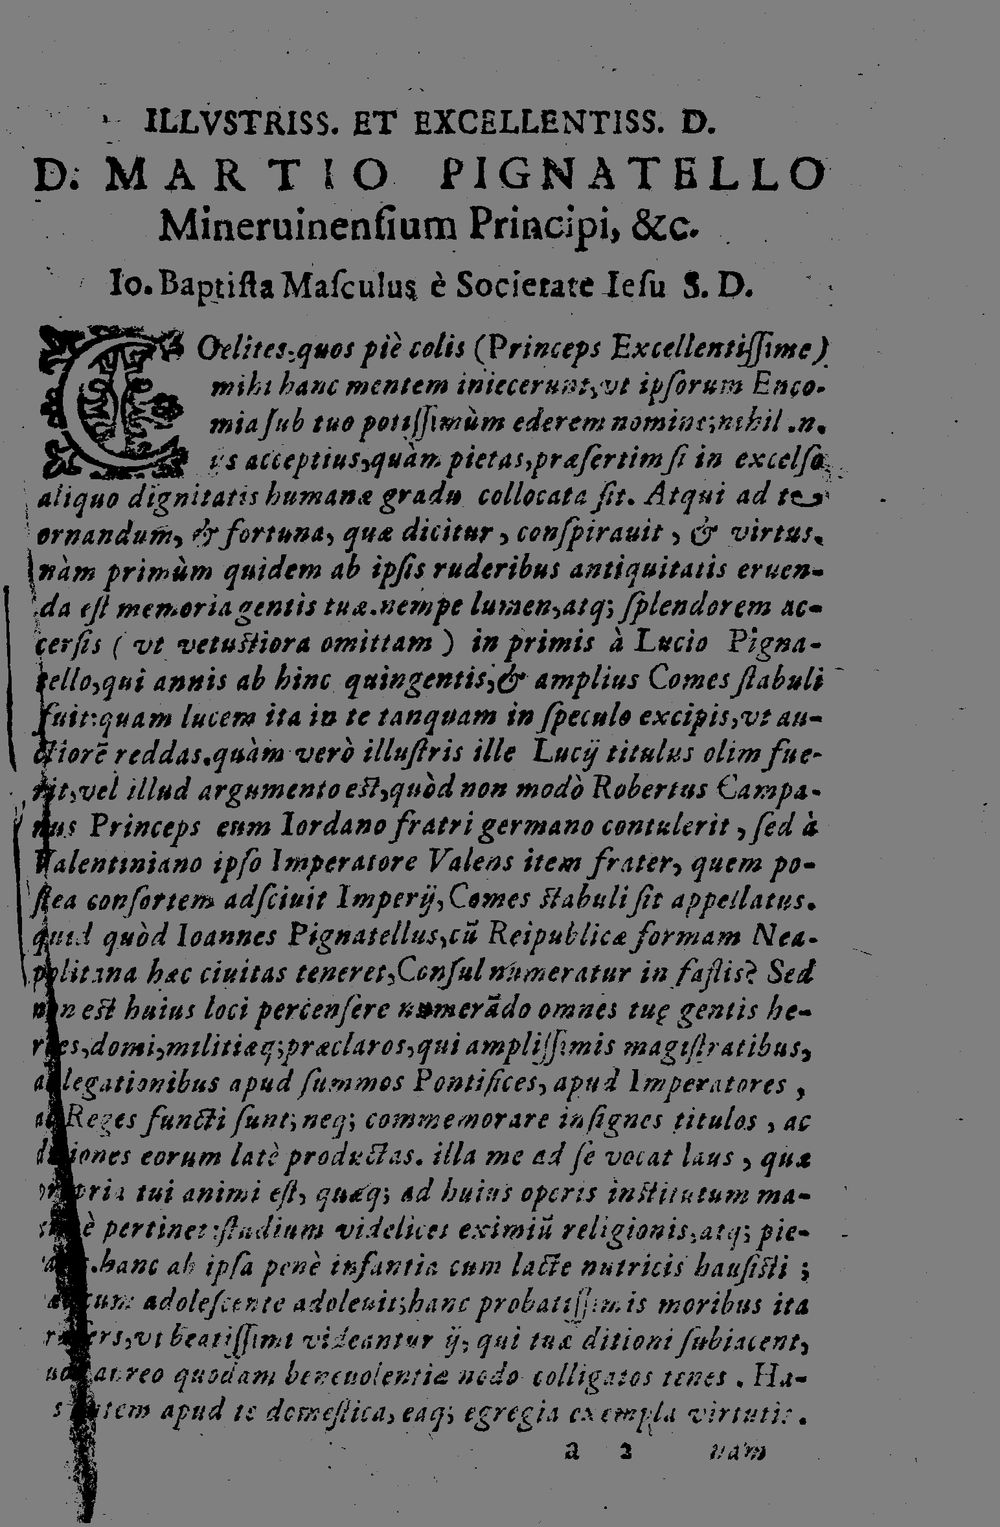 ILLVSTRISS. ET EXCELLENTISS. D.
D. MARTIO PIGNATELLO
Mineruinenſium Principi, &c.
Io. Baptiſta Maſculus è Societate Ieſu S. D.
COelites, quos piè colis (Princeps Excellentiſſime)
mihi hanc mentem iniecerunt, vt ipſorum Enco-
mia ſub tuo potiſſimùm ederem nomine; nihil .n.
ijs acceptius, quàm pietas, præſertim ſi in excelſo
aliquo dignitatis humanæ gradu collocata ſit. Atqui ad te
ornandum, & fortuna, quæ dicitur, conſpirauit, & virtus.
nàm primùm quidem ab ipſis ruderibus antiquitatis eruen-
da eſt memoria gentis tuæ. nempe lumen, atq; ſplendorem ac-
cerſis (vt vetuſtiora omittam) in primis à Lucio Pigna-
tello, qui annis ab hinc quingentis, & amplius Comes ſtabuli
fuit: quam lucem ita in te tanquam in ſpeculo excipis, vt au-
ctiorē reddas. quàm verò illuſtris ille Lucij titulus olim fue-
rit, vel illud argumento eſt, quòd non modò Robertus Campa-
nus Princeps eum Iordano fratri germano contulerit, ſed à
Valentiniano ipſo Imperatore Valens item frater, quem po-
ſtea conſortem adſciuit Imperij, Comes ſtabuli ſit appellatus.
quid quòd Ioannes Pignatellus, cū Reipublicæ formam Nea-
politana hæc ciuitas teneret, Conſul numeratur in faſtis? Sed
non eſt huius loci percenſere numerādo omnes tuę gentis he-
roes, domi, militiæq; præclaros, qui ampliſſimis magiſtratibus,
ac legationibus apud ſummos Pontifices, apud Imperatores,
ac Reges functi ſunt; neq; commemorare inſignes titulos, ac
ditiones eorum latè productas. illa me ad ſe vocat laus, quæ
propria tui animi eſt, quæq; ad huius operis inſtitutum ma-
ximè pertinet: ſtudium videlicet eximiū religionis, atq; pie-
hanc ab ipſa penè infantia cum lacte nutricis hauſiſti;
cum adoleſcente adoleuit; hanc probatiſſimis moribus ita
refers, vt beatiſſimi videantur ij, qui tuæ ditioni ſubiacent,
aureo quodam beneuolentiæ nodo colligatos tenes. Ha-
autem apud te domeſtica, eaq; egregia exempla virtutis.
a 2 nam